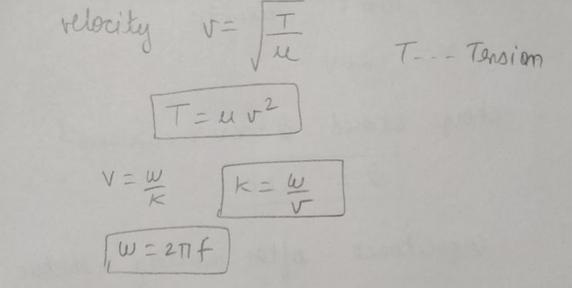 velocity v = √(T/μ) T --- Tension
T = μ v²
v = ω/k k = ω/v
ω = 2πf